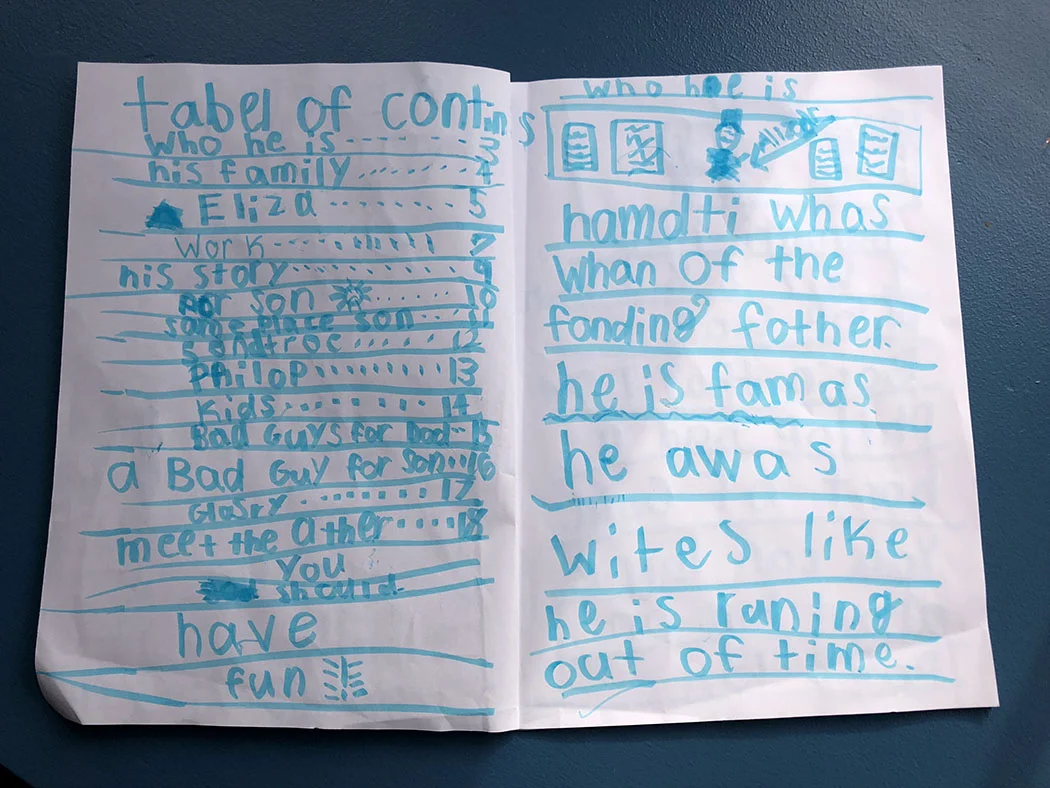 tabel of contins
who he is 3
his family 4
Eliza 5
work 7
his story
por son 10
some place son
sondtroc 12
PHilop 13
kids 14
Bad Guys for Dad 15
a Bad Guy for son 16
Glosry 17
meet the Ather 18
you
should
have
fun!
who he is
hamdti whas
whan of the
fonding fother.
he is famas.
he awas
wites like
he is raning
out of time.